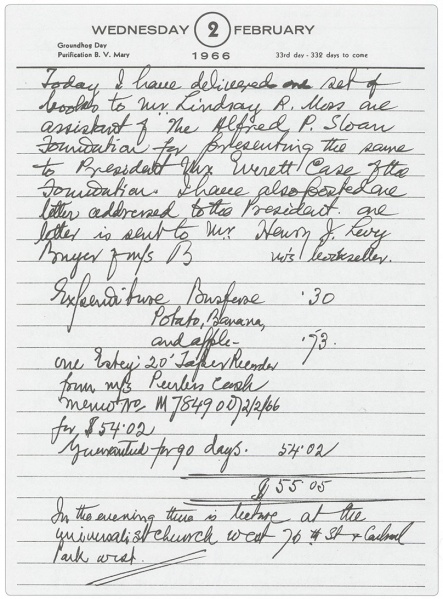 WEDNESDAY 2 FEBRUARY
Groundhog Day
Purification B. V. Mary
1966
33rd day - 332 days to come
Today I have delivered one set of
books to Mr. Lindsay R. Moss one
assistant of The Alfred P. Sloan
Foundation for presenting the same
to President Mr. Everett Case of the
Foundation. I have also posted one
letter addressed to the President. one
letter is sent to Mr. Henry J. Levy
Buyer of m/s B bookseller.
Expenditure Busfare .30
Potato, Banana,
and apple- .73
one 20' Tape Recorder
from m/s Peerless Cash
memo No. M 78490 D/2/2/66
for $54.02
Guaranteed for 90 days. 54.02
$55.05
In the evening there is lecture at the
universalist church West 76th St & Central
Park west.